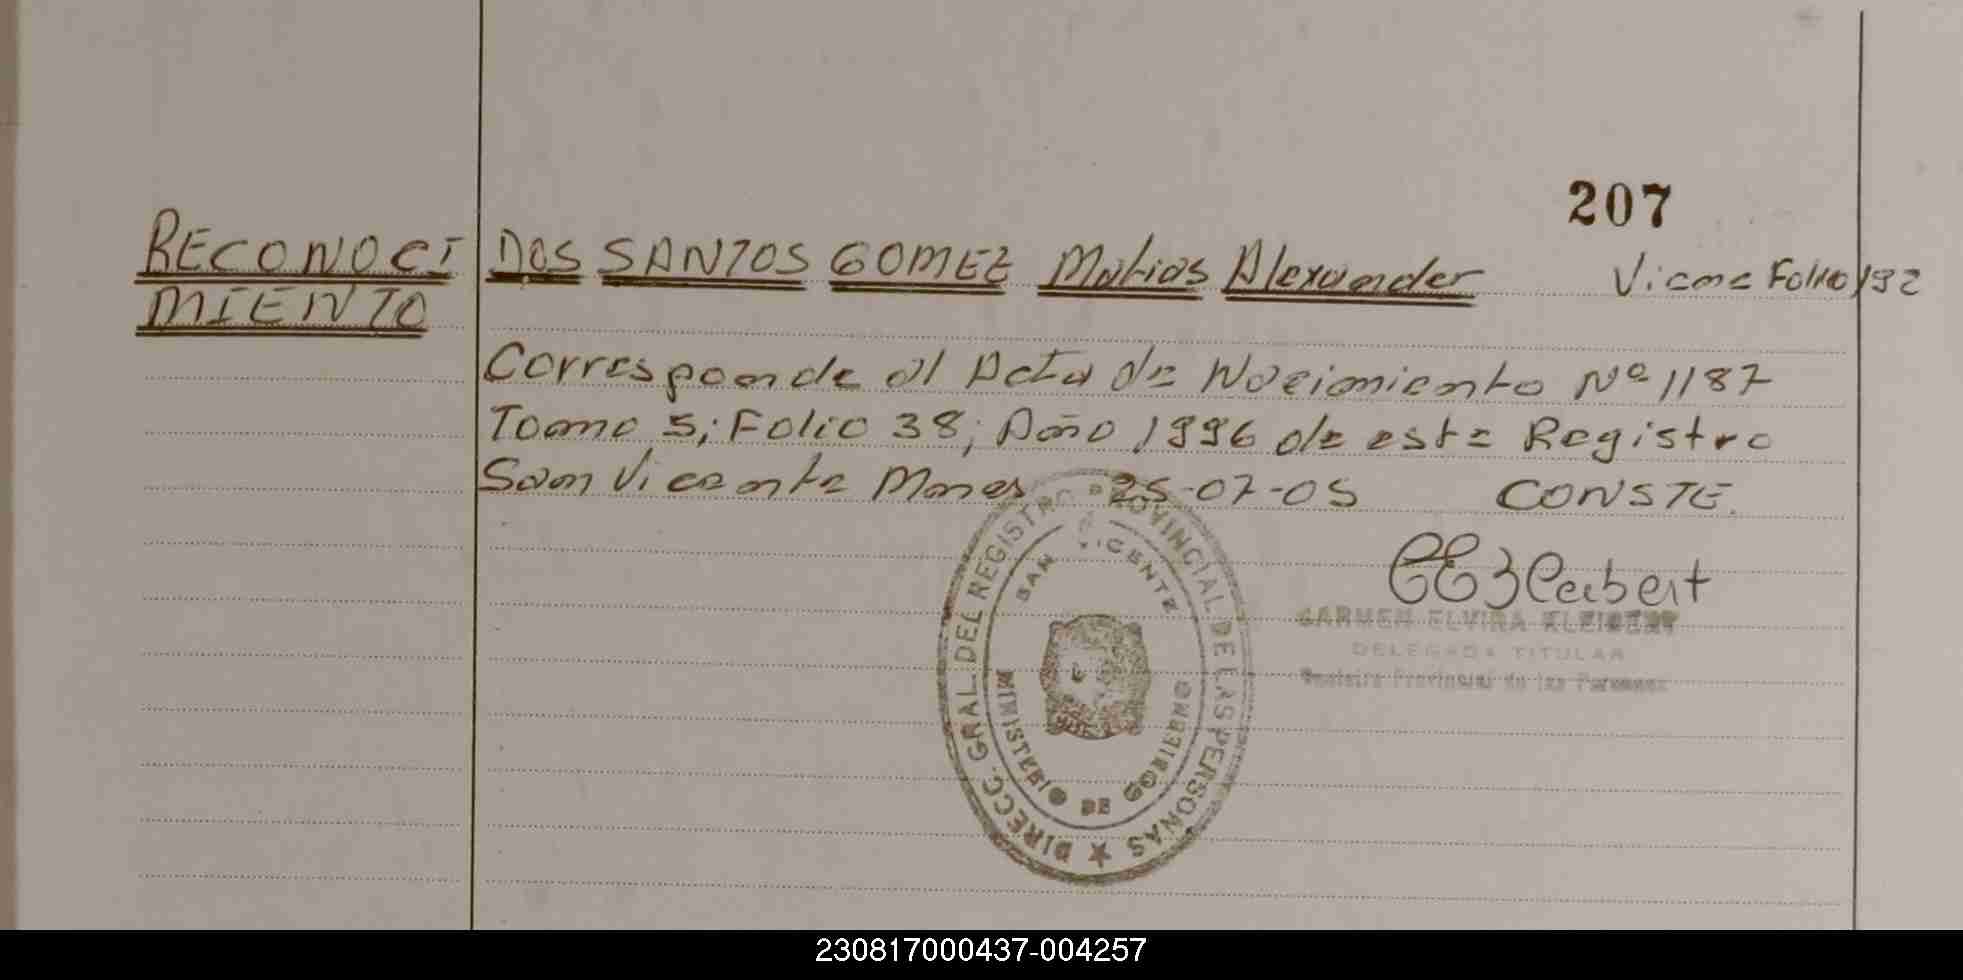 207
RECONOCI DOS SANTOS GOMEZ Matias Alexander Viene Folio 192
MIENTO
Corresponde al Acta de Nacimiento Nº 1187
Tomo 5; Folio 38; Año 1996 de este Registro
San Vicente Mnes 25-07-05 CONSTE.
CEKleibert
CARMEN ELVIRA KLEIBERT
DELEGADA TITULAR
Registro Provincial de las Personas
DIRECC. GRAL. DEL REGISTRO PROVINCIAL DE LAS PERSONAS ★
SAN VICENTE
MINISTERIO DE GOBIERNO
230817000437-004257